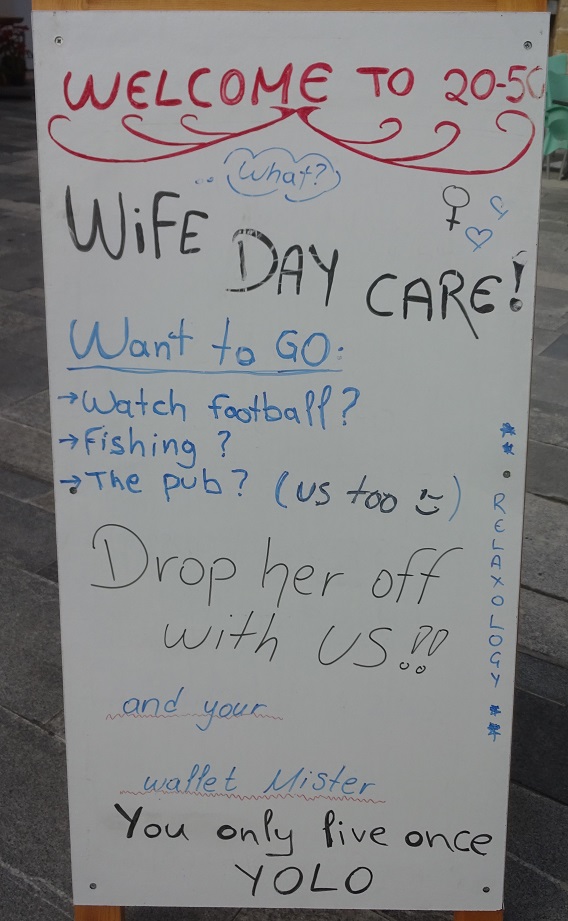 WELCOME TO 20-50
..What?
WiFE
DAY
CARE!
Want to GO:
→Watch football?
→Fishing?
→The pub? (us too :))
** RELAXOLOGY **
Drop her off
with US!!
and your
wallet Mister
You only live once
YOLO